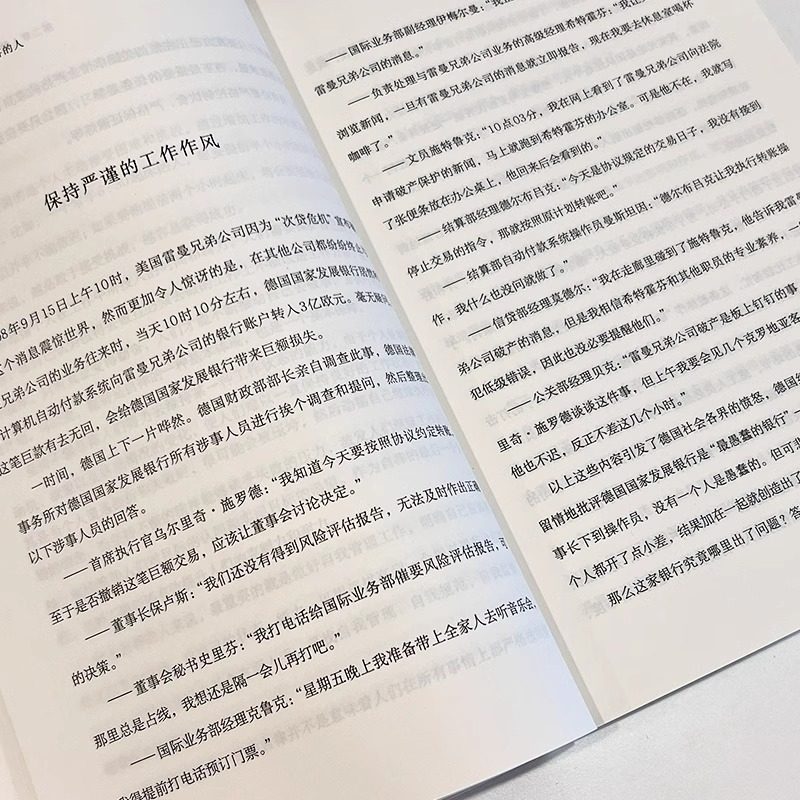 的人
保持严谨的工作作风
8年9月15日上午10时，美国雷曼兄弟公司因为“次贷危机”宣布
个消息震惊世界，然而更加令人惊讶的是，在其他公司都纷纷终止
兄弟公司的业务往来时，当天10时10分左右，德国国家发展银行居然
计算机自动付款系统向雷曼兄弟公司的银行账户转入3亿欧元。毫无疑问
这笔巨款有去无回，会给德国国家发展银行带来巨额损失。
一时间，德国上下一片哗然。德国财政部部长亲自调查此事，德国法
事务所对德国国家发展银行所有涉事人员进行挨个调查和提问，然后整理
以下涉事人员的回答。
——首席执行官乌尔里奇·施罗德：“我知道今天要按照协议约定转账
至于是否撤销这笔巨额交易，应该让董事会讨论决定。”
——董事长保卢斯：“我们还没有得到风险评估报告，无法及时作出正确
的决策。”
——董事会秘书史里芬：“我打电话给国际业务部催要风险评估报告，可
那里总是占线，我想还是隔一会儿再打吧。”
——国际业务部经理克鲁克：“星期五晚上我准备带上全家人去听音乐会，
我得提前打电话预订门票。”
——国际业务部副经理伊梅尔曼：“我
雷曼兄弟公司的消息。”
——负责处理与雷曼兄弟公司业务的高级经理希特霍芬：“我让
浏览新闻，一旦有雷曼兄弟公司的消息就立即报告，现在我要去休息室喝杯
咖啡了。”
——文员施特鲁克：“10点03分，我在网上看到了雷曼兄弟公司向法院
申请破产保护的新闻，马上就跑到希特霍芬的办公室。可是他不在，我就写
了张便条放在办公桌上，他回来后会看到的。”
——结算部经理德尔布吕克：“今天是协议规定的交易日子，我没有接到
停止交易的指令，那就按照原计划转账吧。”
——结算部自动付款系统操作员曼斯坦因：“德尔布吕克让我执行转账操
作，我什么也没问就做了。”
——信贷部经理莫德尔：“我在走廊里碰到了施特鲁克，他告诉我雷曼
弟公司破产的消息，但是我相信希特霍芬和其他职员的专业素养，一
犯低级错误，因此也没必要提醒他们。”
——公关部经理贝克：“雷曼兄弟公司破产是板上钉钉的事
里奇·施罗德谈谈这件事，但上午我要会见几个克罗地亚客
他也不迟，反正不差这几个小时。”
以上这些内容引发了德国社会各界的愤怒，德国
留情地批评德国国家发展银行是“最愚蠢的银行”—
事长下到操作员，没有一个人是愚蠢的。但可悲
个人都开了点小差，结果加在一起就创造出了
那么这家银行究竟哪里出了问题？答